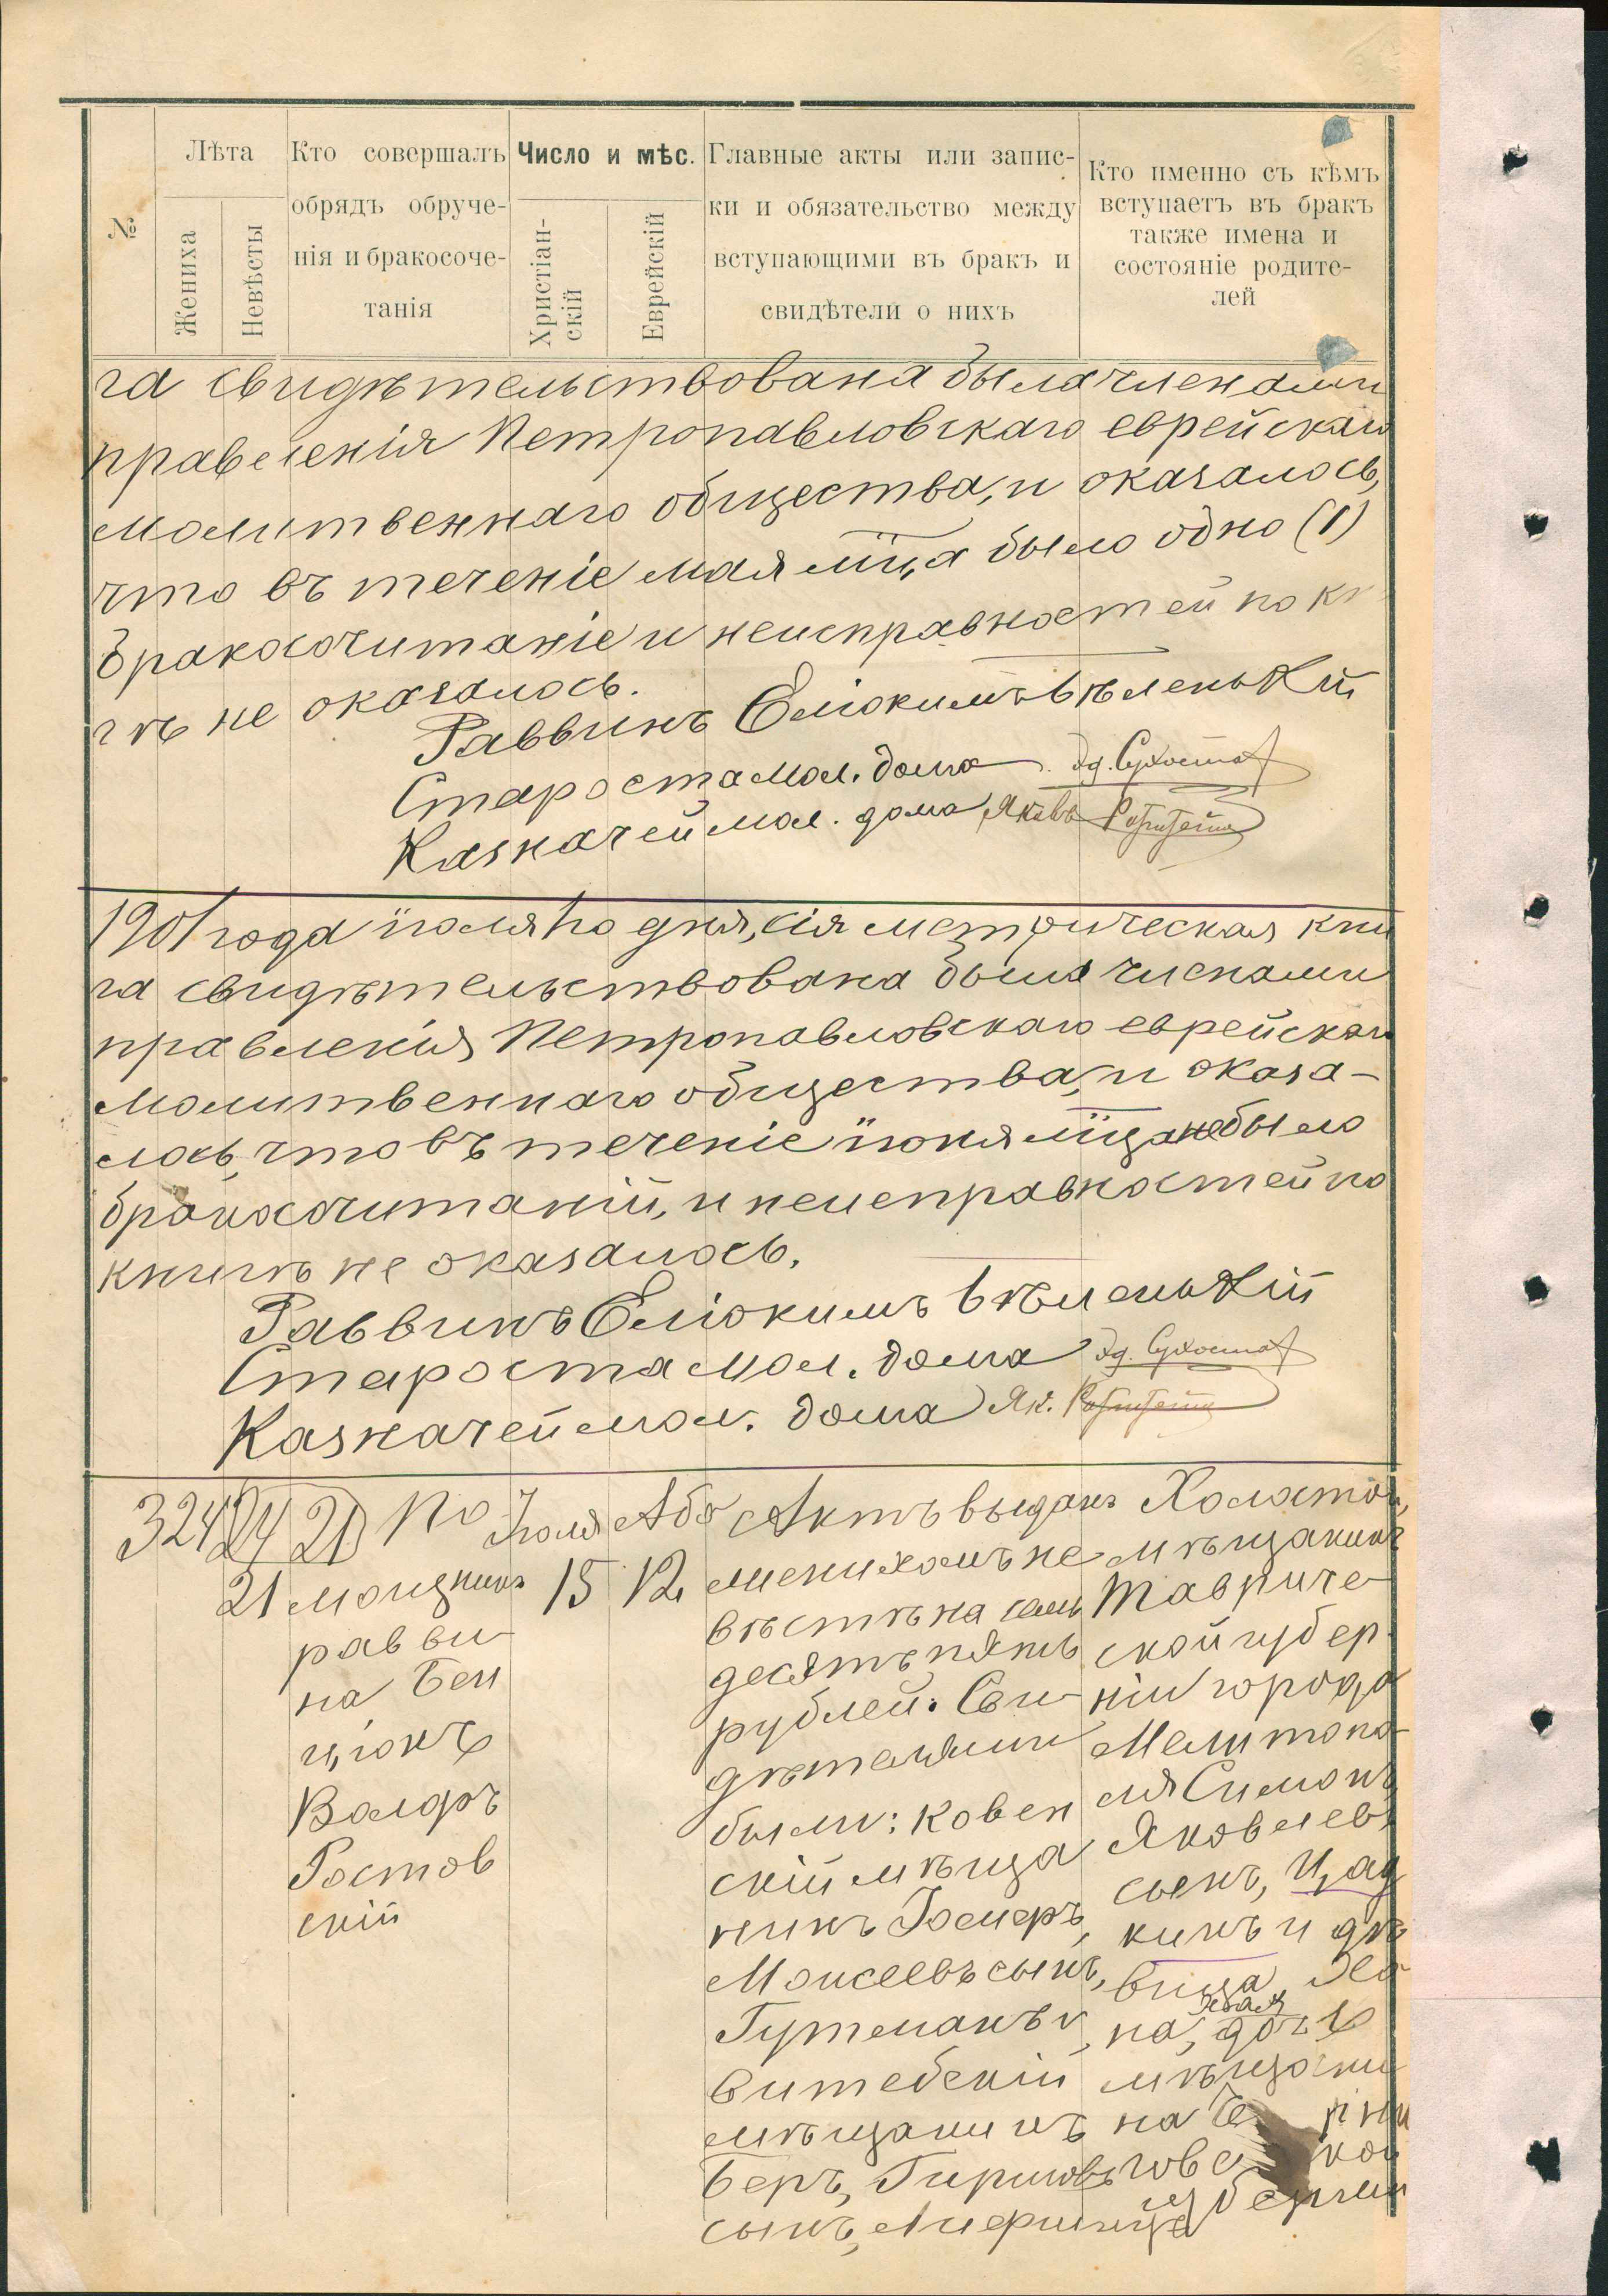 №
Лѣта
Жениха
Невѣсты
Кто совершалъ
обрядъ обруче-
нія и бракосоче-
танія
Число и мѣс.
Христіан-
скій
Еврейскій
Главные акты или запис-
ки и обязательство между
вступающими въ бракъ и
свидѣтели о нихъ
Кто именно съ кѣмъ
вступаетъ въ бракъ
также имена и
состояніе родите-
лей
га свидѣтельствована была членами
правленія Петропавловскаго еврейскаго
молитвеннаго общества, и оказалось,
что въ теченіе мая мца было одно (1)
бракосочитаніе и неисправностей по кн
гѣ не оказалось.
Раввинъ Еліокимъ Бѣленькій
Староста мол. дома Эд. Сухоста
Казначей мол. дома Яковъ
1901 года іюля 1го дня, сія метрическая кни
га свидѣтельствована была членами
правленія Петропавловскаго еврейскаго
молитвеннаго общества, и оказа-
лось, что въ теченіе іюня мца не было
бракосочитаній, и неисправностей по
книгѣ не оказалось.
Раввинъ Еліокимъ Бѣленькій
Староста мол. дома Эд. Сухоста
Казначей мол. дома Як.
3
24
21
24 21
21
По
мощникъ
равви
на Бен
ціонъ
Волфъ
Ростов
скій
Іюля
15
Абъ
12
Актъ выданъ
женихомъ не
вѣстѣ на семь
десятъ пять
рублей. Сви-
дѣтелями
были: ковен
скій мѣща
нинъ
Моисеевъ сынъ,
Гутманъ и
витебскій
мѣщанинъ
Беръ, Гиршовъ
сынъ, Лифшицъ
Холостой,
мѣщанинъ
Тавриче-
ской губер-
ніи города
Мелитопо-
ля Симонъ
Яковлевъ
сынъ, Цад
кинъ и дѣ
вица Ха
на, дочь
мѣщани
на Че
говс кой
губерніи